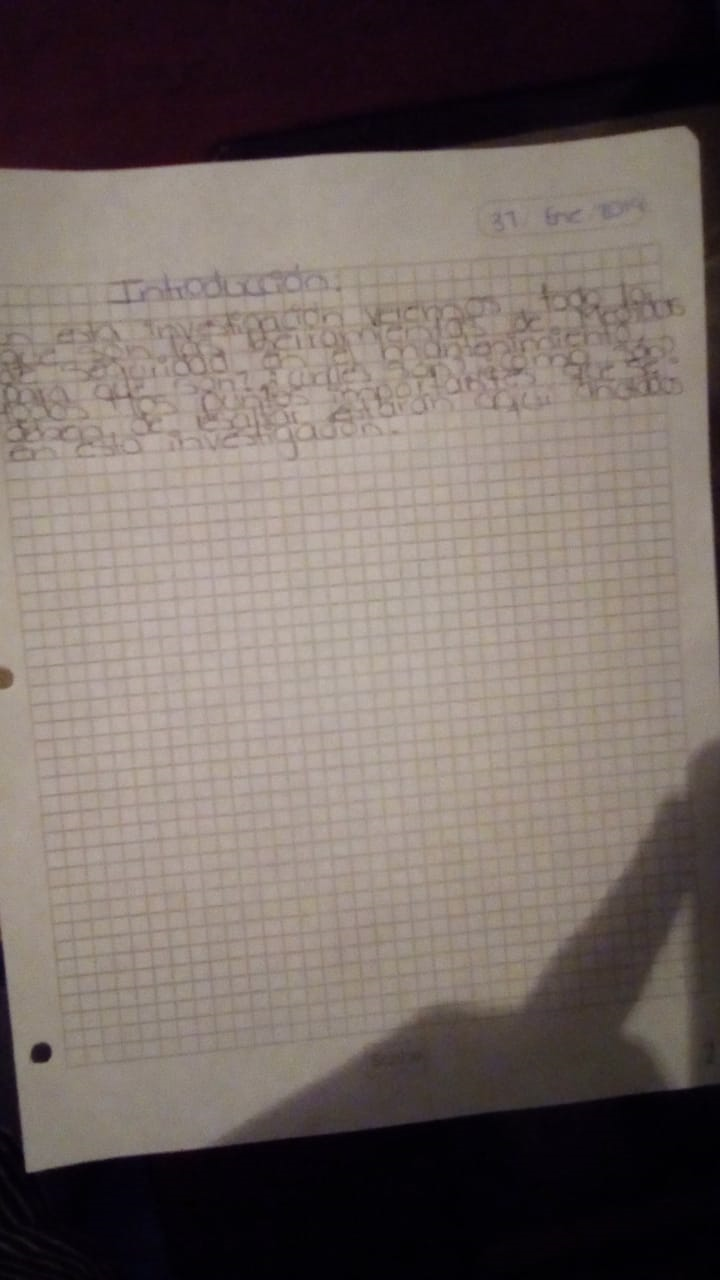 31 Ene 2019
Introducción.
en esta investigación veremos todo lo
que son las herramientas de medidas
de seguridad en el mantenimiento
para que son? cuales son? como son?
todos los puntos importantes que se
de estarán aquí anotados
en esta investigación.